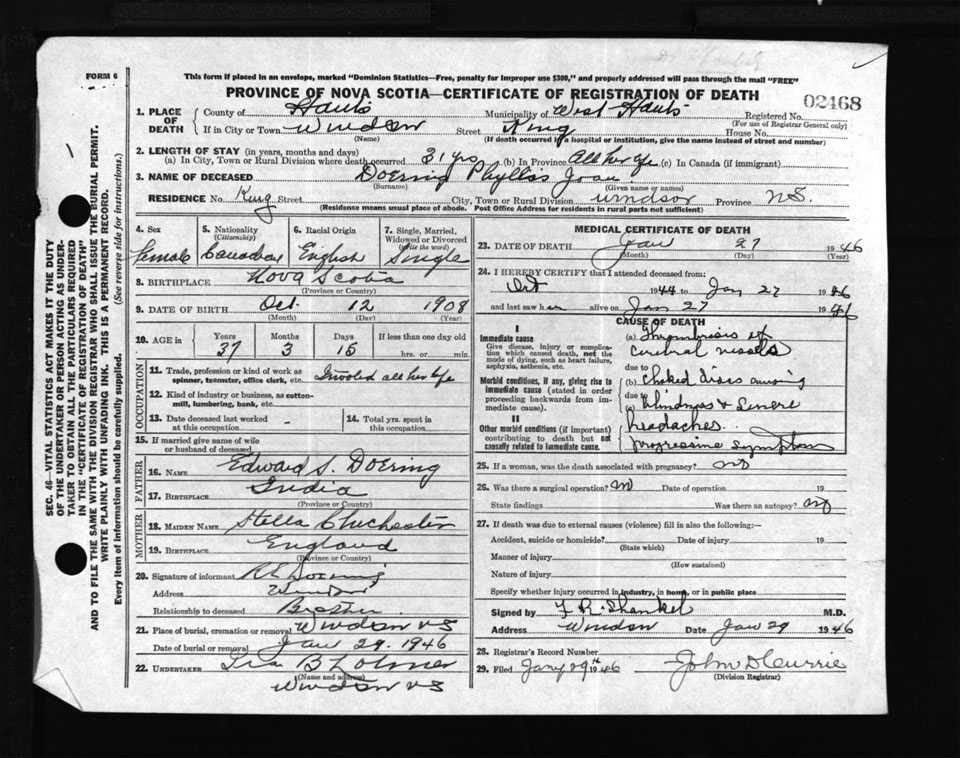 FORM 6
This form if placed in an envelope, marked "Dominion Statistics—Free, penalty for improper use $300," and properly addressed will pass through the mail "FREE"
PROVINCE OF NOVA SCOTIA—CERTIFICATE OF REGISTRATION OF DEATH
02468
1. PLACE OF DEATH
County of Hants Municipality of West Hants Registered No.
(For use of Registrar General only)
If in City or Town Windsor Street King House No.
(Name) (If death occurred in a hospital or institution, give the name instead of street and number)
2. LENGTH OF STAY (in years, months and days)
(a) In City, Town or Rural Division where death occurred 31 yrs (b) In Province All her life (c) In Canada (if immigrant)
3. NAME OF DECEASED Doering Phyllis Joan
(Surname) (Given name or names)
RESIDENCE No. King Street City, Town or Rural Division Windsor Province N.S.
(Residence means usual place of abode. Post Office Address for residents in rural parts not sufficient)
4. Sex 5. Nationality (Citizenship) 6. Racial Origin 7. Single, Married, Widowed or Divorced (Write the word)
Female Canadian English Single
8. BIRTHPLACE Nova Scotia
(Province or Country)
9. DATE OF BIRTH Oct. 12 1908
(Month) (Day) (Year)
10. AGE IN Years Months Days If less than one day old
37 3 15 hrs. or min.
OCCUPATION
11. Trade, profession or kind of work as spinner, teamster, office clerk, etc. Invalid all her life
12. Kind of industry or business, as cotton-mill, lumbering, bank, etc.
13. Date deceased last worked at this occupation 14. Total yrs. spent in this occupation
15. If married give name of wife or husband of deceased
FATHER
16. NAME Edward S. Doering
17. BIRTHPLACE India
(Province or Country)
MOTHER
18. MAIDEN NAME Stella Chichester
19. BIRTHPLACE England
(Province or Country)
20. Signature of informant Doering
Address Windsor
Relationship to deceased Brother
21. Place of burial, cremation or removal Windsor NS
Date of burial or removal Jan 29. 1946
22. UNDERTAKER
(Name and address)
Windsor NS
MEDICAL CERTIFICATE OF DEATH
23. DATE OF DEATH Jan 27 1946
(Month) (Day) (Year)
24. I HEREBY CERTIFY that I attended deceased from:
Oct 1944 to Jan 27 1946
and last saw her alive on Jan 27 1946
CAUSE OF DEATH
I
Immediate cause
Give disease, injury or complication which caused death, not the mode of dying, such as heart failure, asphyxia, asthenia, etc.
(a) Thrombosis of cerebral vessels
due to
Morbid conditions, if any, giving rise to immediate cause (stated in order proceeding backwards from immediate cause).
(b) Choked discs causing
due to
(c) blindness & severe
II
headaches.
Other morbid conditions (if important) contributing to death but not causally related to immediate cause.
progressive symptoms
25. If a woman, was the death associated with pregnancy? no
26. Was there a surgical operation? no Date of operation 19
State findings Was there an autopsy? no
27. If death was due to external causes (violence) fill in also the following:—
Accident, suicide or homicide? Date of injury 19
(State which)
Manner of injury
(How sustained)
Nature of injury
Specify whether injury occurred in industry, in home, or in public place
Signed by F. R. Shankel M.D.
Address Windsor Date Jan 29 1946
28. Registrar's Record Number
29. Filed Jany 29th 1946 John D Currie
(Division Registrar)
SEC. 46—VITAL STATISTICS ACT MAKES IT THE DUTY
OF THE UNDERTAKER OR PERSON ACTING AS UNDER-
TAKER TO OBTAIN ALL THE PARTICULARS REQUIRED
IN THE "CERTIFICATE OF REGISTRATION OF DEATH"
AND TO FILE THE SAME WITH THE DIVISION REGISTRAR WHO SHALL ISSUE THE BURIAL PERMIT.
WRITE PLAINLY WITH UNFADING INK. THIS IS A PERMANENT RECORD.
Every item of information should be carefully supplied. (See reverse side for instructions.)